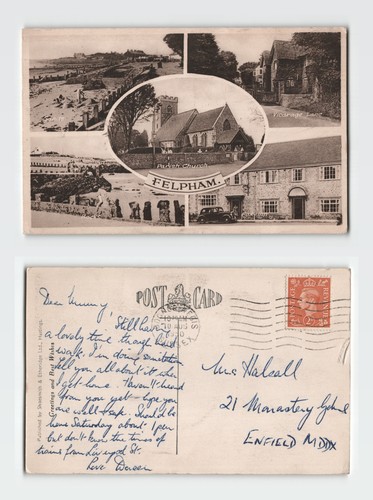 Vicarage Lane
Parish Church
FELPHAM.
POST CARD
Greetings and Best Wishes
Dear Mummy,
Still having
a lovely time though hard
work. I'm doing sanitation
tell you all about it when
I get home. Haven't heard
from you yet - hope you
are well & Pop. Should be
home Saturday about 1 pm
but don't know the times of
trains from Liverpool St.
Love Doreen
Mrs Halsall
21 Monastery
ENFIELD MDDX